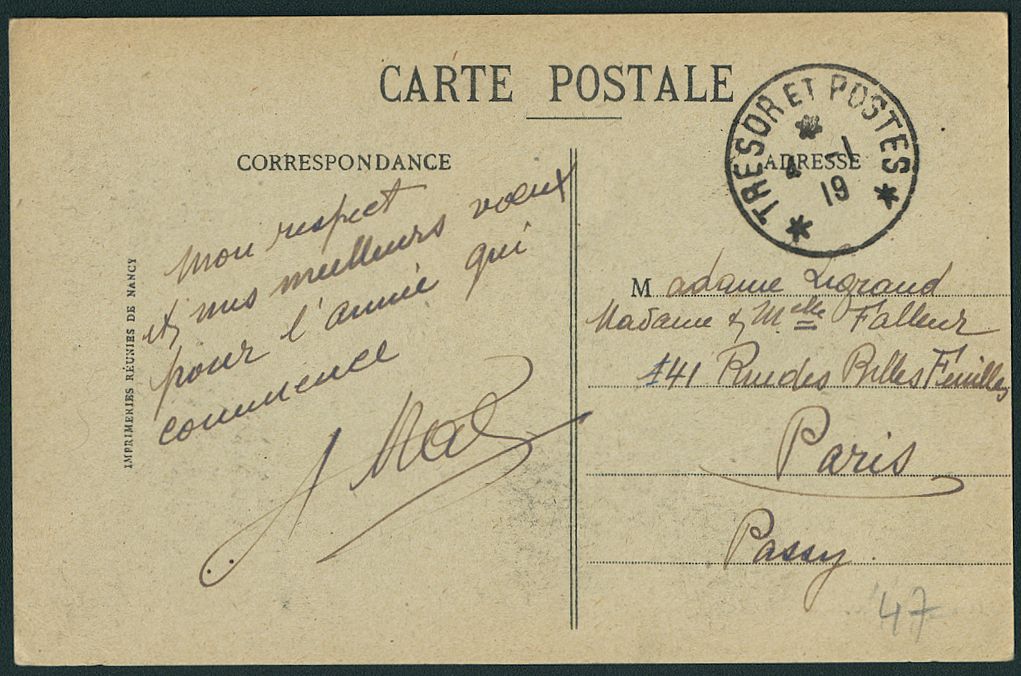 CARTE POSTALE
CORRESPONDANCE
ADRESSE
TRESOR ET POSTES
4 -1
19
Mon respect
et mes meilleurs vœux
pour l'année qui
commence
IMPRIMERIES RÉUNIES DE NANCY
Madame Legrand
Madame & Melle Falleur
141 Rue des Belles Feuilles
Paris
Passy
47